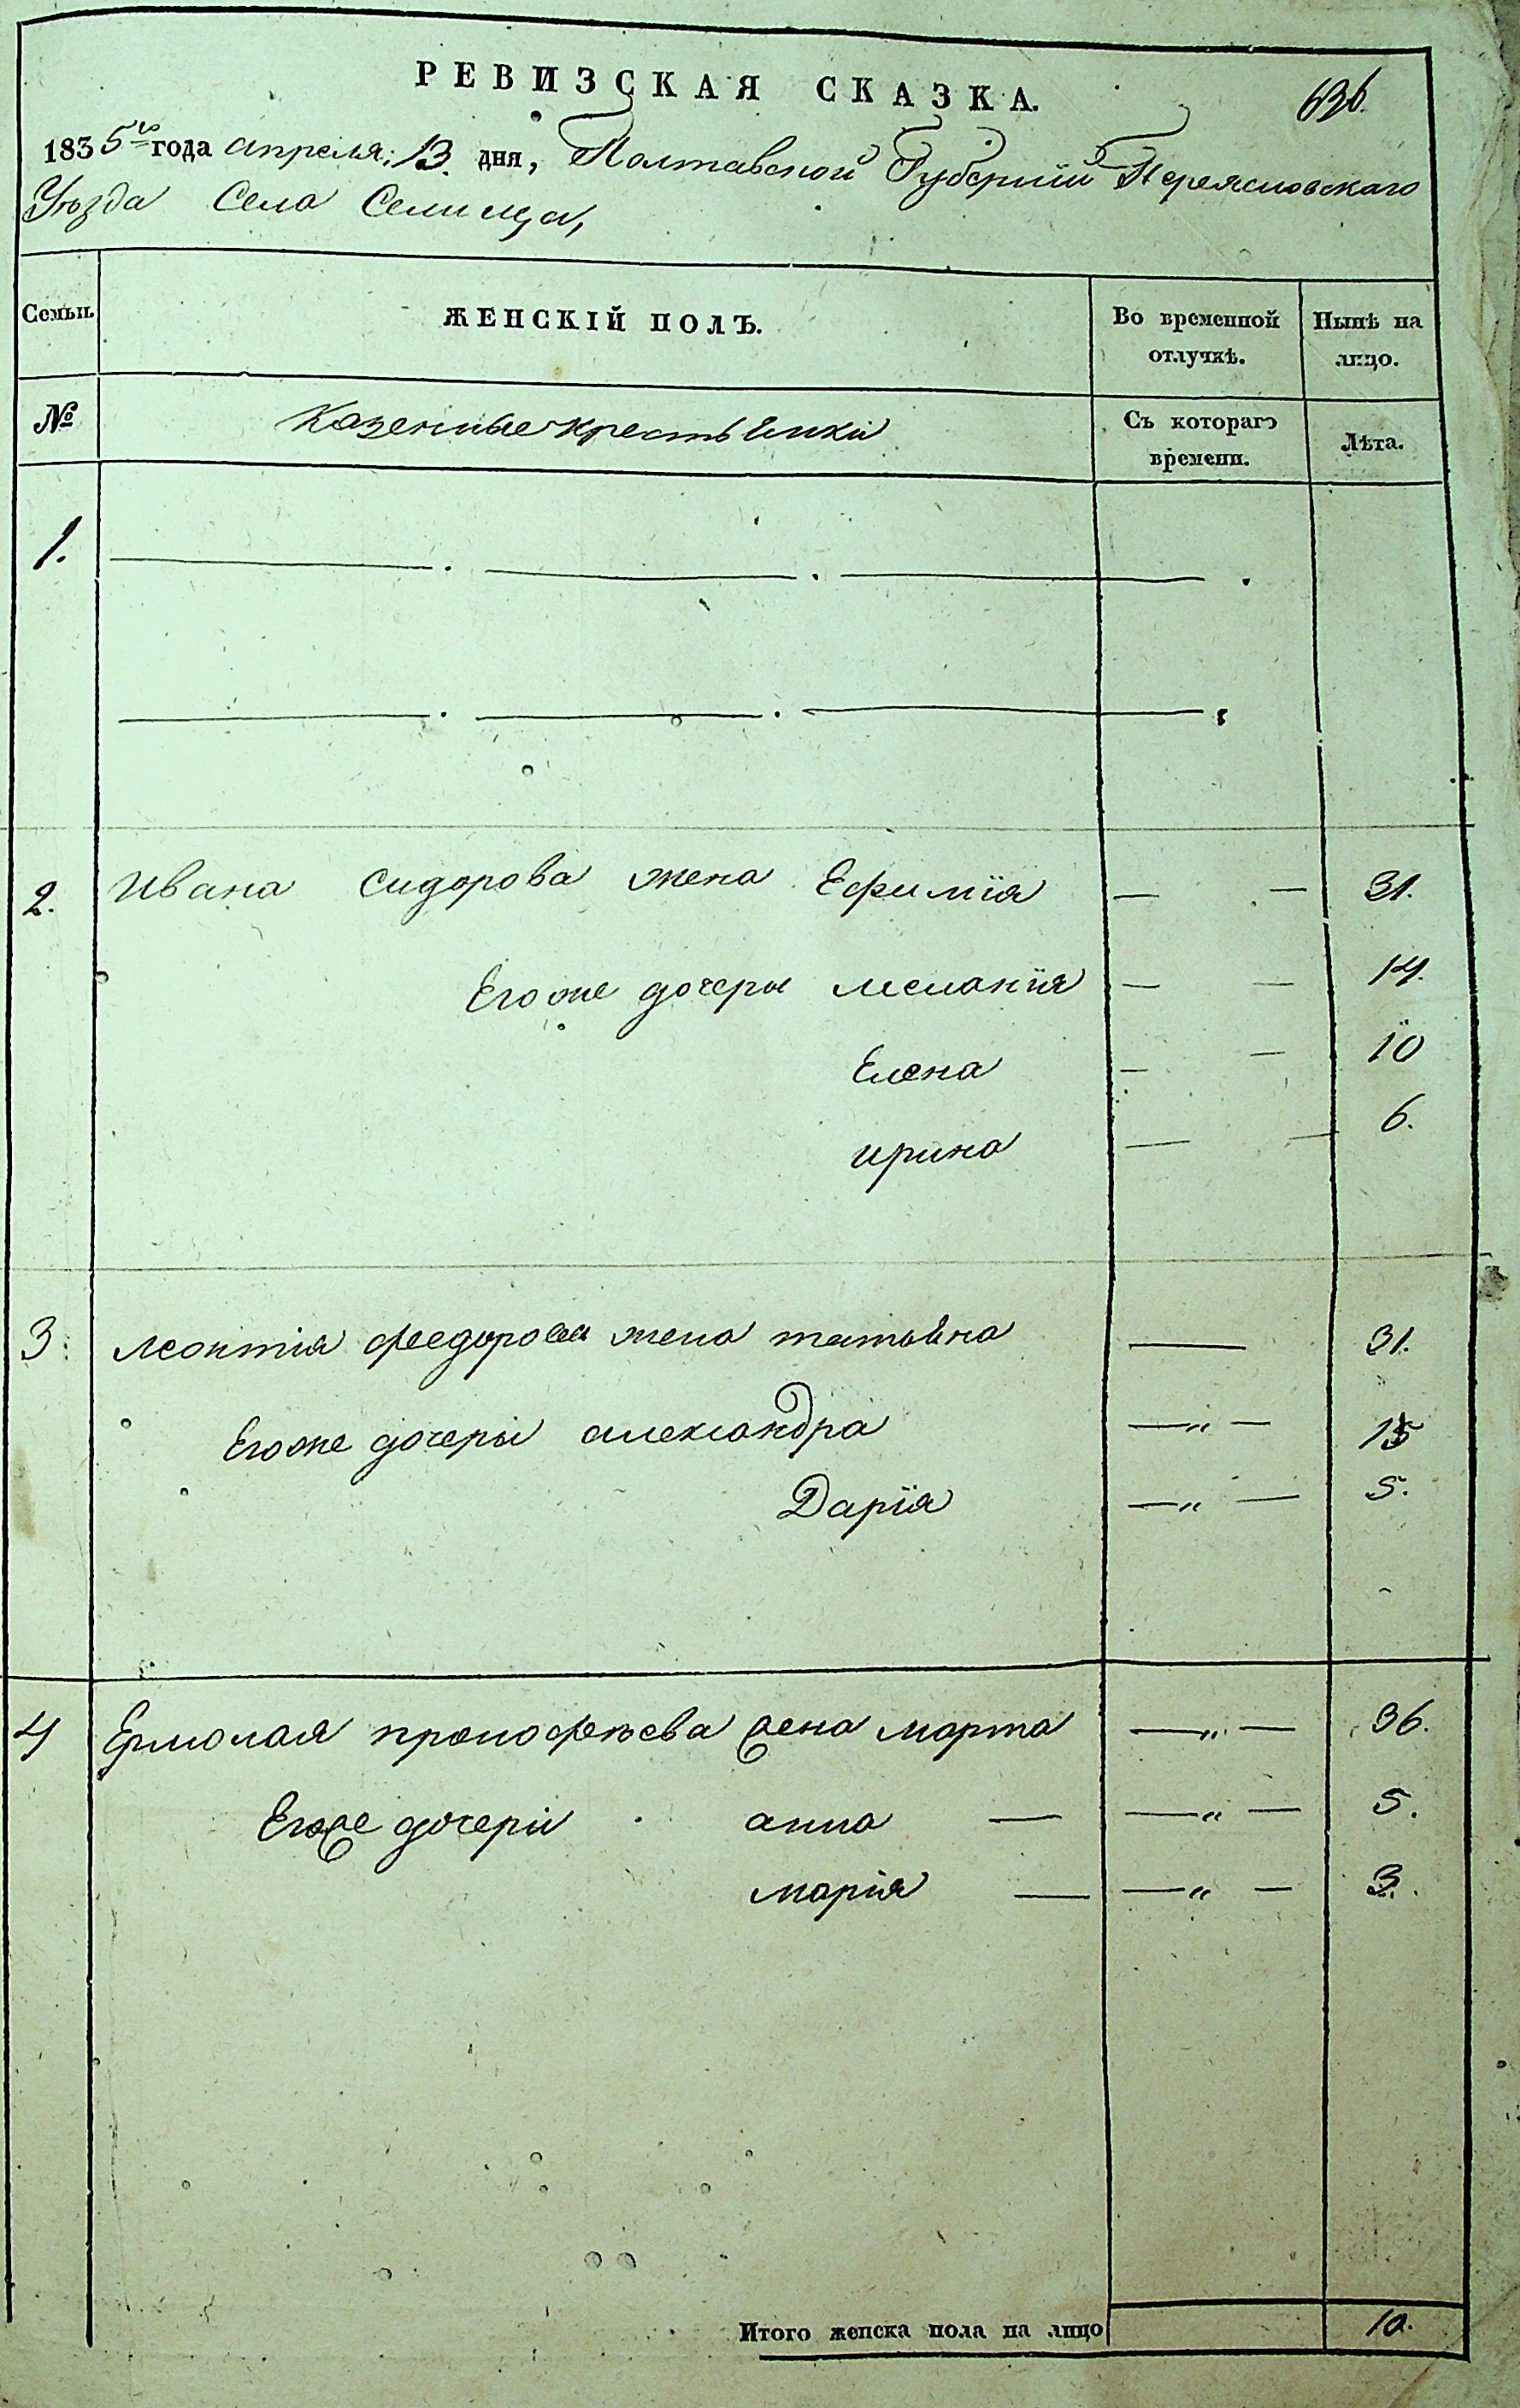 РЕВИЗСКАЯ СКАЗКА.
636.
1835го года апреля 13. дня, Полтавской Губернїи Переясловскаго
Уѣзда Села Семица,
Семьи.
ЖЕНСКІЙ ПОЛЪ.
Во временной отлучкѣ.
Нынѣ на лицо.
№
Казенные крестьянки
Съ котораго времени.
Лѣта.
1.
2. Ивана Сидорова жена Ефимїя — — 31.
Его же дочеры Меланїя — — 14.
Елена — — 10
Ирина — — 6.
3. Леонтїя Федорова жена татьяна — 31.
Егоже дочеры александра — „ — 15
Дарїя — „ — 5.
4 Ермолая прокофьева жена марта — „ — 36.
Егоже дочери анна — — „ — 5.
марїя — — „ — 3.
Итого женска пола на лицо 10.